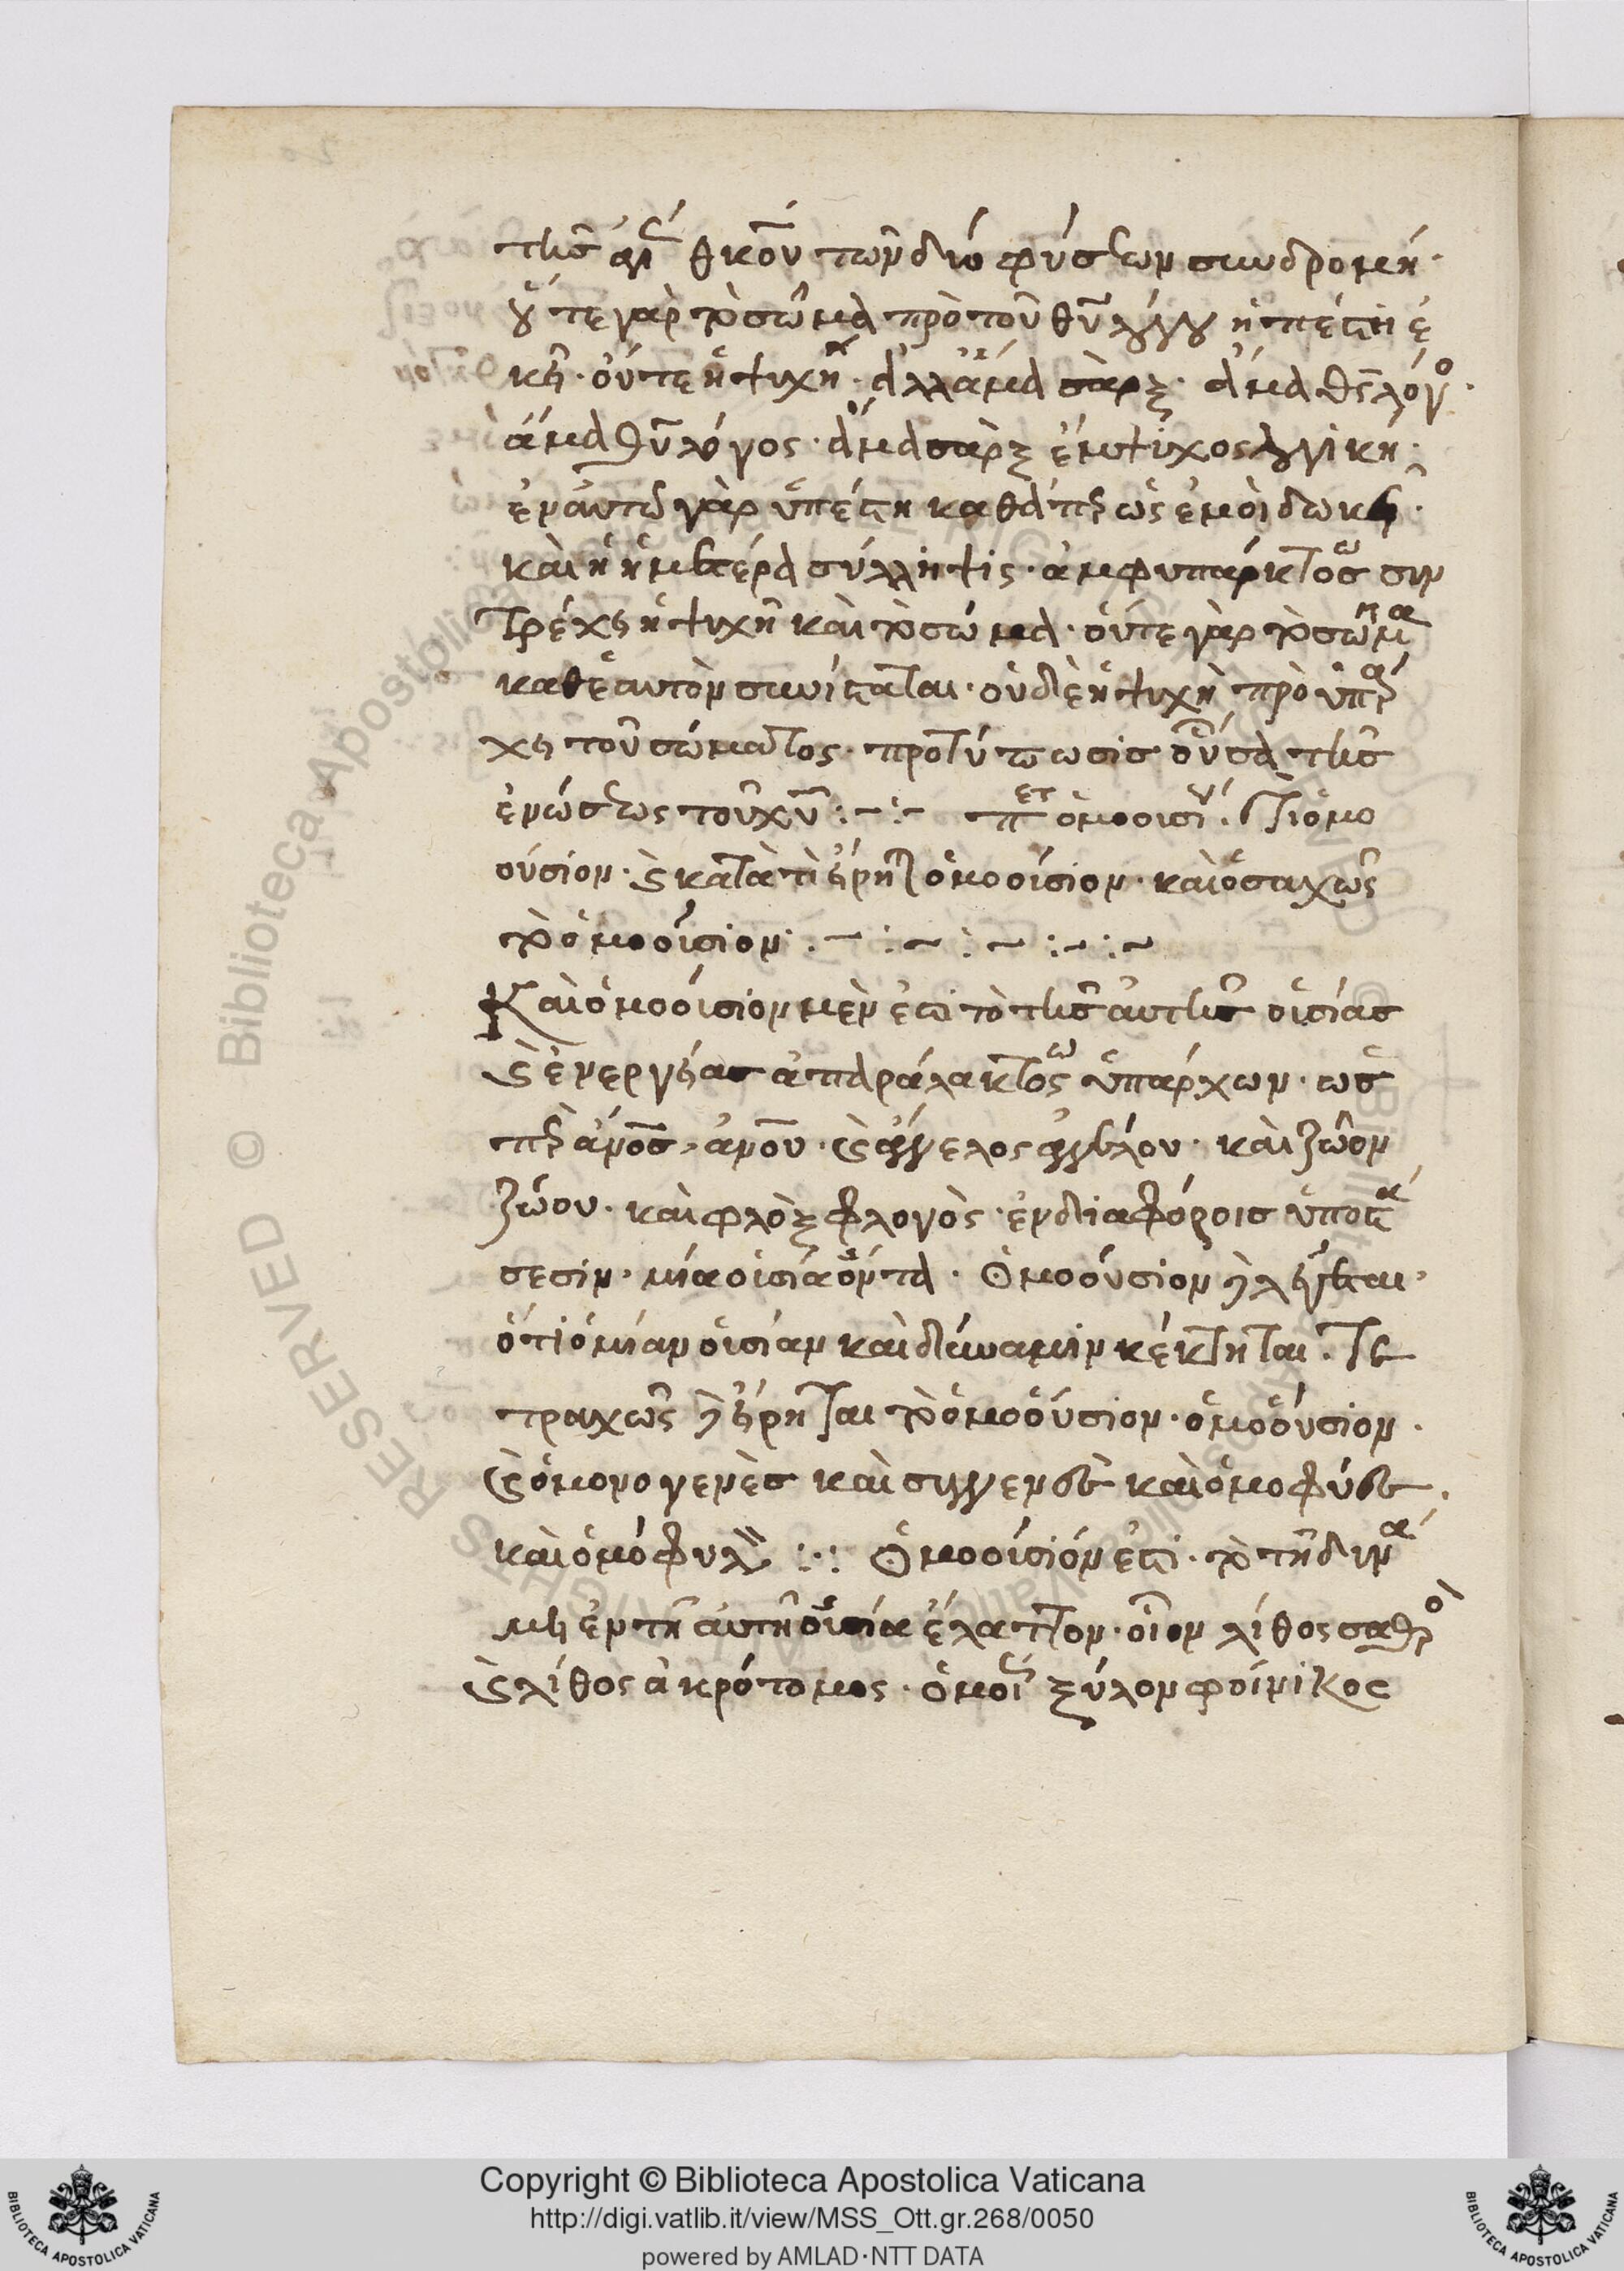 τῆς ἀληθικοῦν τῶν δύο φύσεων συνδρομή·
οὔτε γὰρ τὸ σῶμα πρὸ τοῦ θυ λόγου ὑπέστη ἐ
κεῖ· οὔτε ἡ ψυχὴ· ἀλλ' ἅμα σὰρξ· ἅμα θς λόγο·
ἅμα θυ λόγος· ἅμα σὰρξ ἔμψυχος λογικὴ·
ἐν αὐτῶ γὰρ ὑπέστη καθάπερ ὡς ἐμοὶ δωκεῖ·
καὶ ἡ ἡμετέρα σύλληψις· ἀμφυπάρκτως συν
τρέχει ἡ ψυχὴ καὶ τὸ σώμα· οὔτε γὰρ τὸ σῶμα
καθ' ἑαυτὸν συνίσταται· οὐδὲ ἡ ψυχὴ προϋπάρ
χει τοῦ σώματος· προτύπωσις οὖσα τῆς
ἑνώσεως τοῦ χυ :~:~ περὶ ὁμοουσίου· τί ὁμο
ούσιον· καὶ κατὰ τί εἴρηται ὁμοούσιον· καὶ ὁσαχῶς
τὸ ὁμοούσιον· :~ :~ :~ :~ :~
Καὶ ὁμοούσιον μὲν ἐστὶ τὸ τῆς αὐτῆς οὐσίας
καὶ ἐνεργείας ἀπαραλάκτως ὑπάρχων· ὡς
περ ἀνος, ἀνου· καὶ ἄγγελος ἀγγέλου· καὶ ζῶον
ζώου· καὶ φλὸξ φλογὸς· ἐν διαφόροις ὑποστά
σεσιν· μία οὐσία ὄντα· Ὁμοούσιον δὲ λέγεται·
ὅτι ὁμίαν οὐσίαν καὶ δύναμιν κέκτηται· Τε
τραχῶς δὲ εἴρηται τὸ ὁμοούσιον· ὁμοούσιον·
καὶ ὁμονογενὲς καὶ συγγενὲς καὶ ὁμοφύὲς·
καὶ ὁμόφυλον :·: Ὁμοούσιόν ἐστι· τὸ τῆ δυνά
μει ἐν τῆ αὐτῆ οὐσία ἔλαττον· οἷον λίθος σαθρὸ
καὶ λίθος ἀκρότομος· ὁμοίως ξύλον φοίνικος
Copyright © Biblioteca Apostolica Vaticana
http://digi.vatlib.it/view/MSS_Ott.gr.268/0050
powered by AMLAD·NTT DATA
BIBLIOTECA APOSTOLICA VATICANA
BIBLIOTECA APOSTOLICA VATICANA